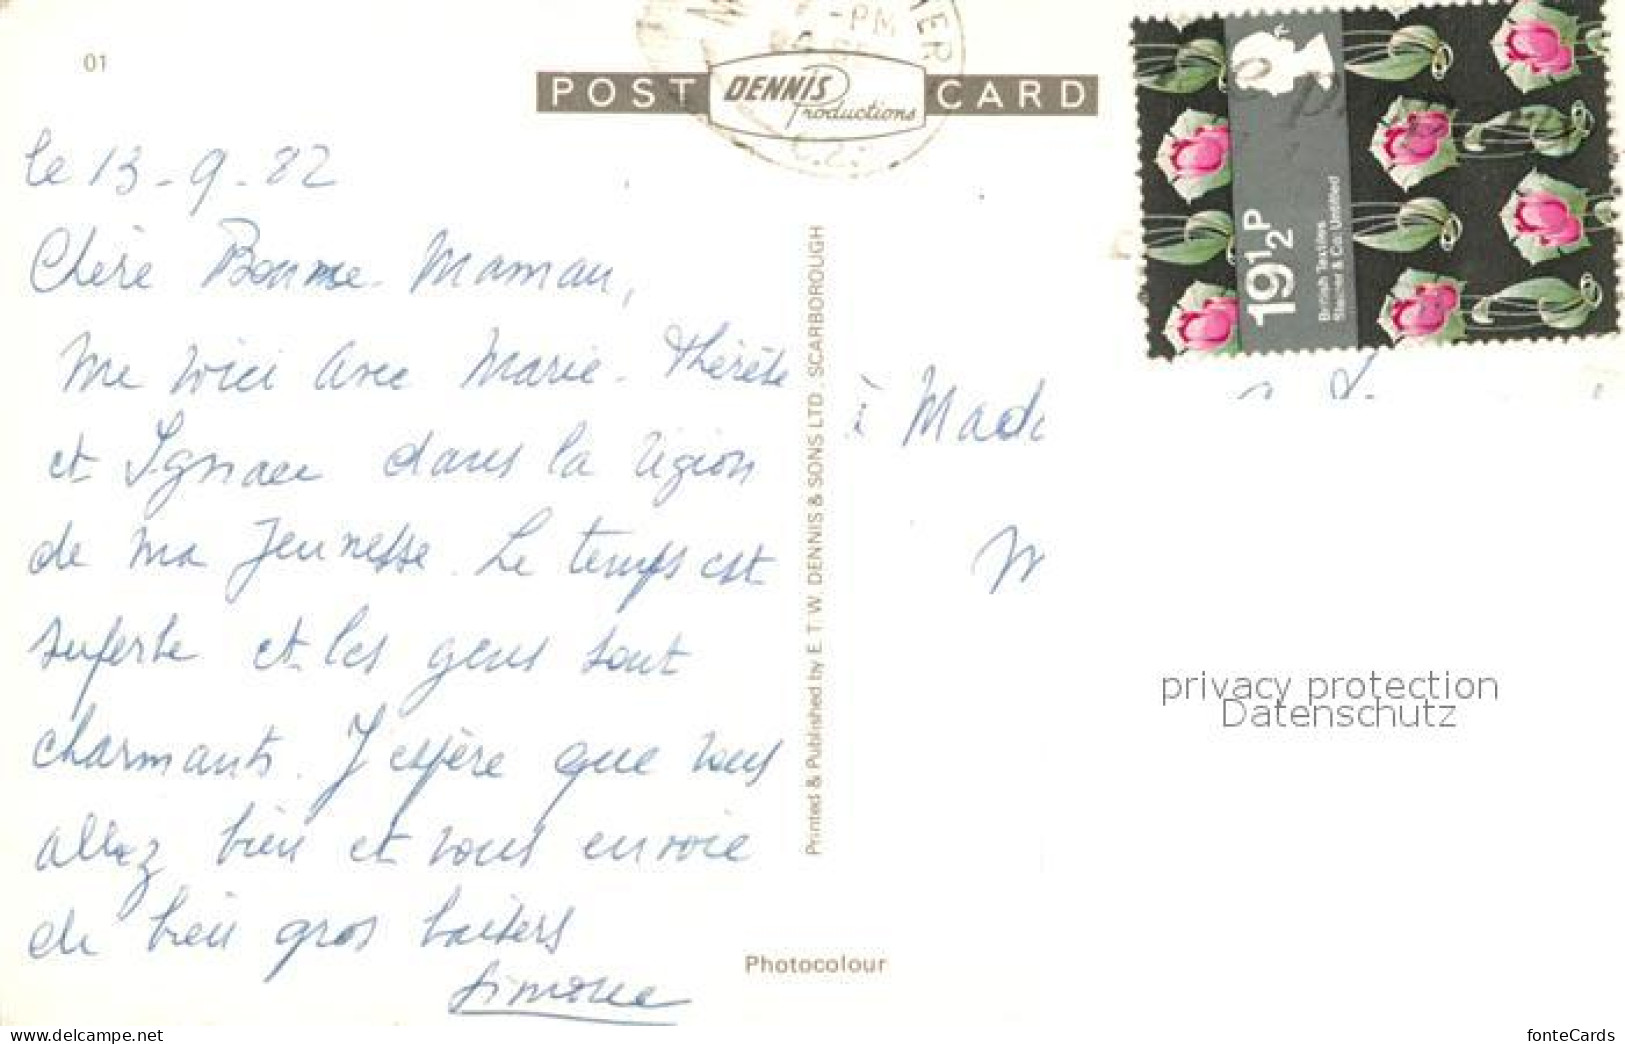 01
POST DENNIS Productions CARD
PM
le 13-9-82
Chère Bonne-Maman,
Me voici avec Marie-Thérèse
et Ignace dans la région
de ma jeunesse. Le temps est
superbe et les gens sont
charmants. J'espère que vous
allez bien et vous envoie
de bien gros baisers
Simone
Printed & Published by E. T. W. DENNIS & SONS LTD., SCARBOROUGH
19½P
British Textiles
Steiner & Co: Untitled
à Mad
privacy protection
Datenschutz
Photocolour
fonteCards